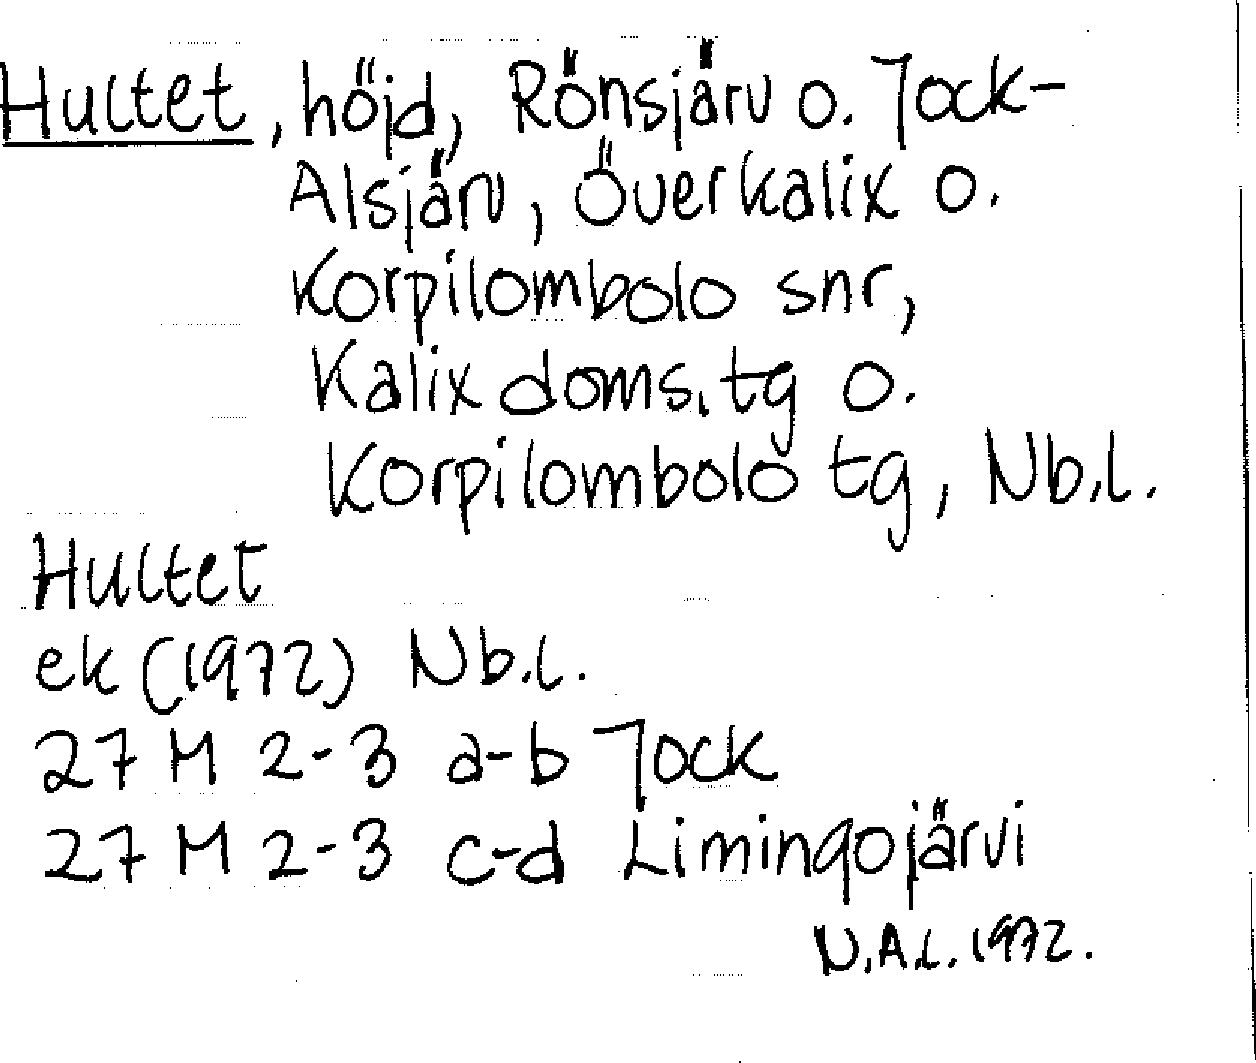 Hultet, höjd, Rönsjärv o. Jock-
Alsjärv, Överkalix o.
Korpilombolo snr,
Kalix doms.tg o.
Korpilombolo tg, Nb.l.
Hultet
ek (1972) Nb.l.
27 M 2-3 a-b Jock
27 M 2-3 c-d Limingojärvi
N.A.L. 1972.